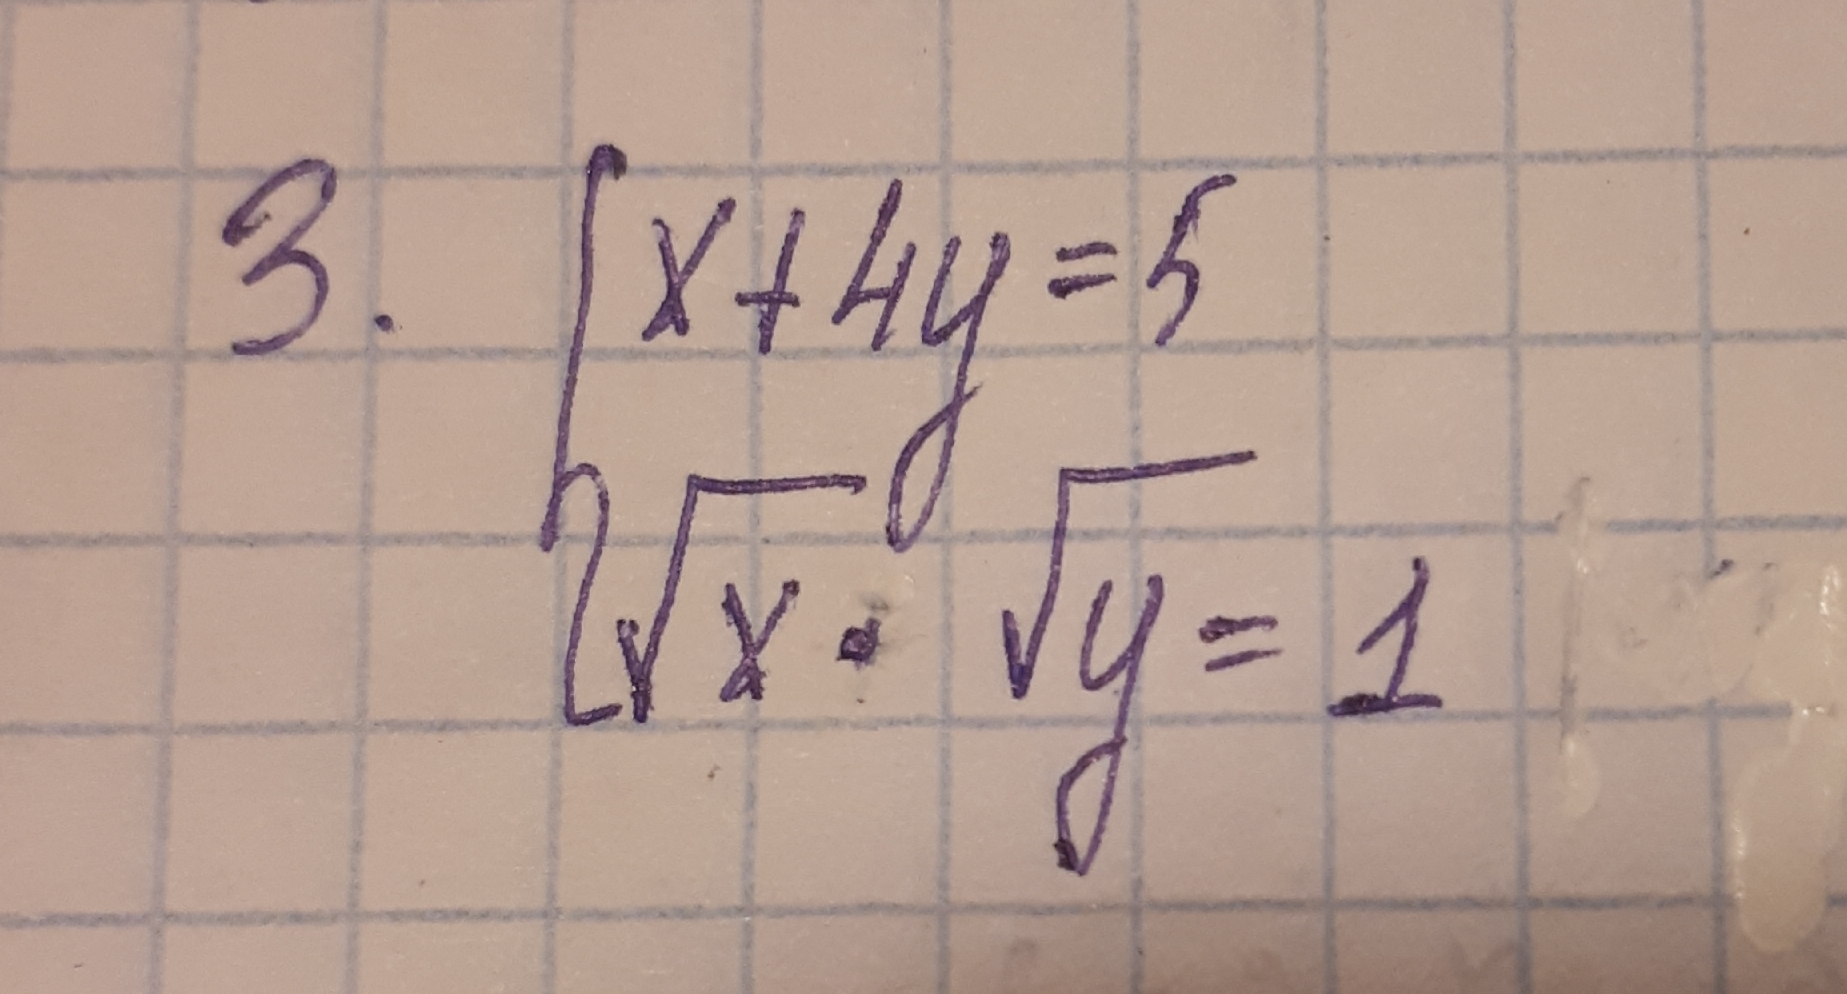 3. x+4y=5
√x · √y = 1